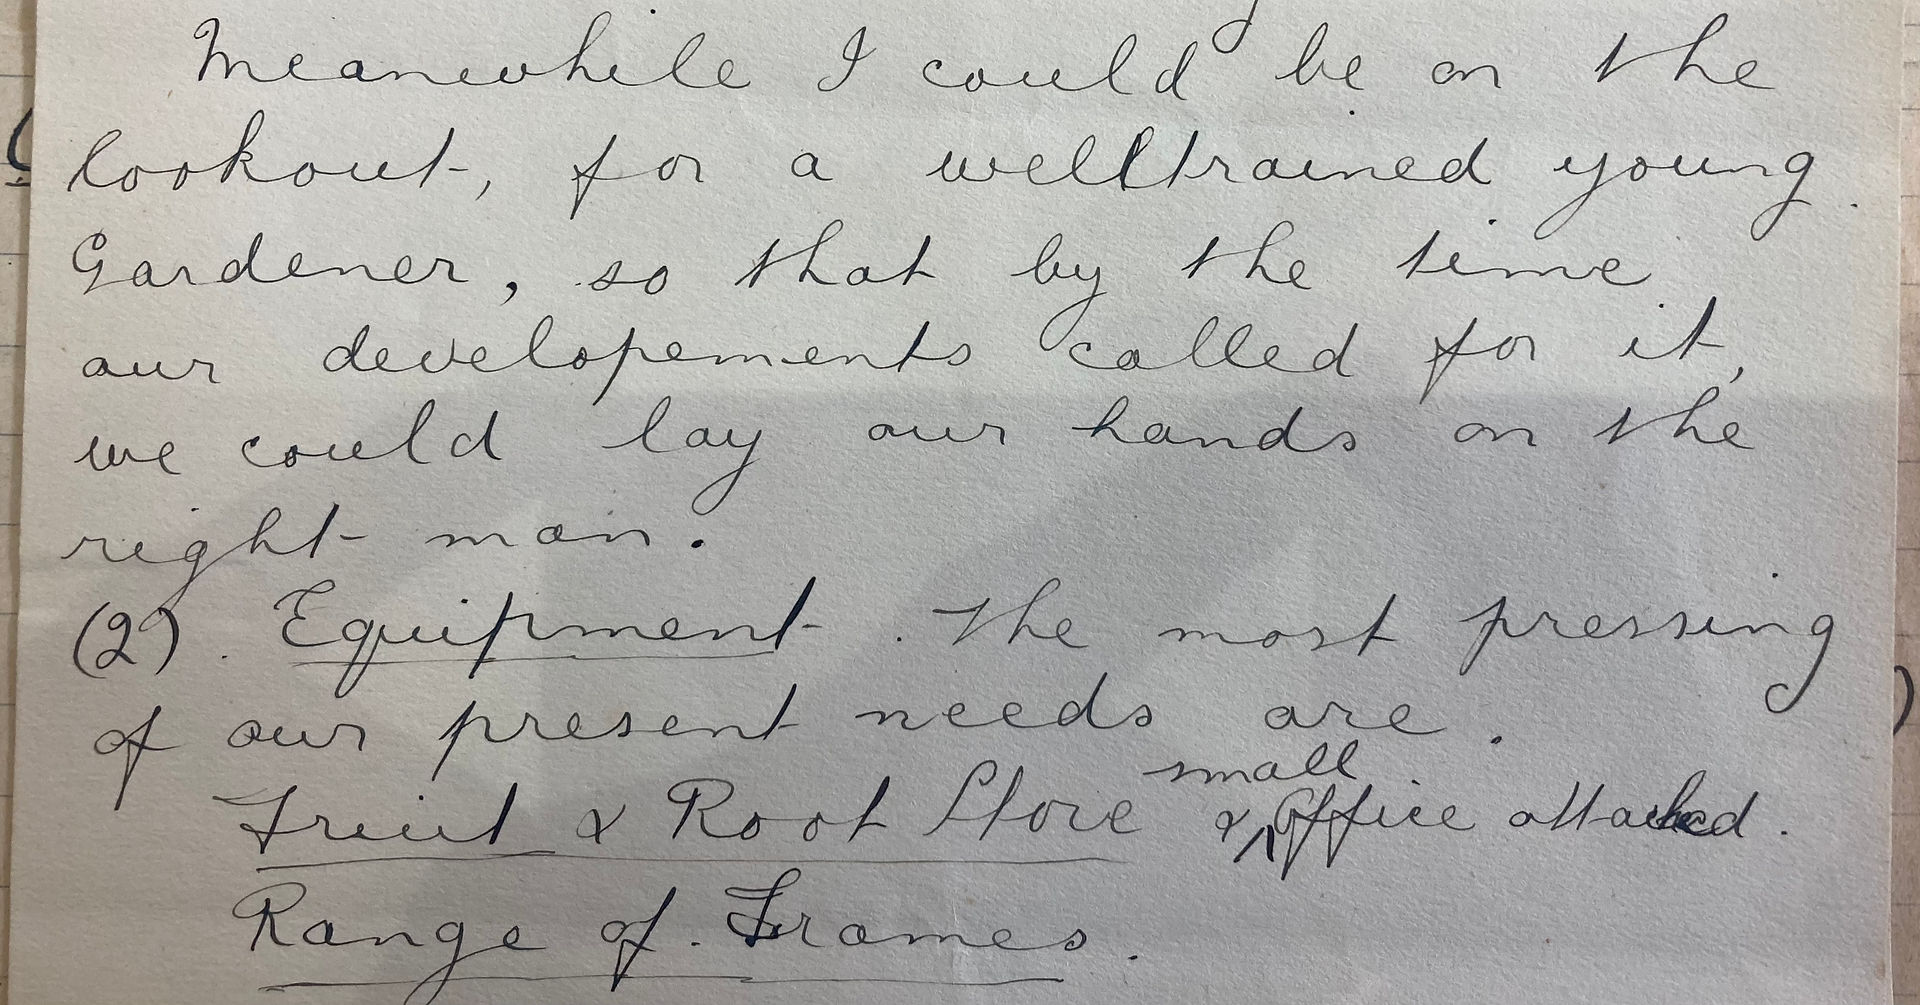 Meanwhile I could be on the
lookout, for a welltrained young
Gardener, so that by the time
our developements called for it,
we could lay our hands on the
right man.
(2). Equipment. The most pressing
of our present needs are.
Fruit & Root Store & small Office attached.
Range of Frames.